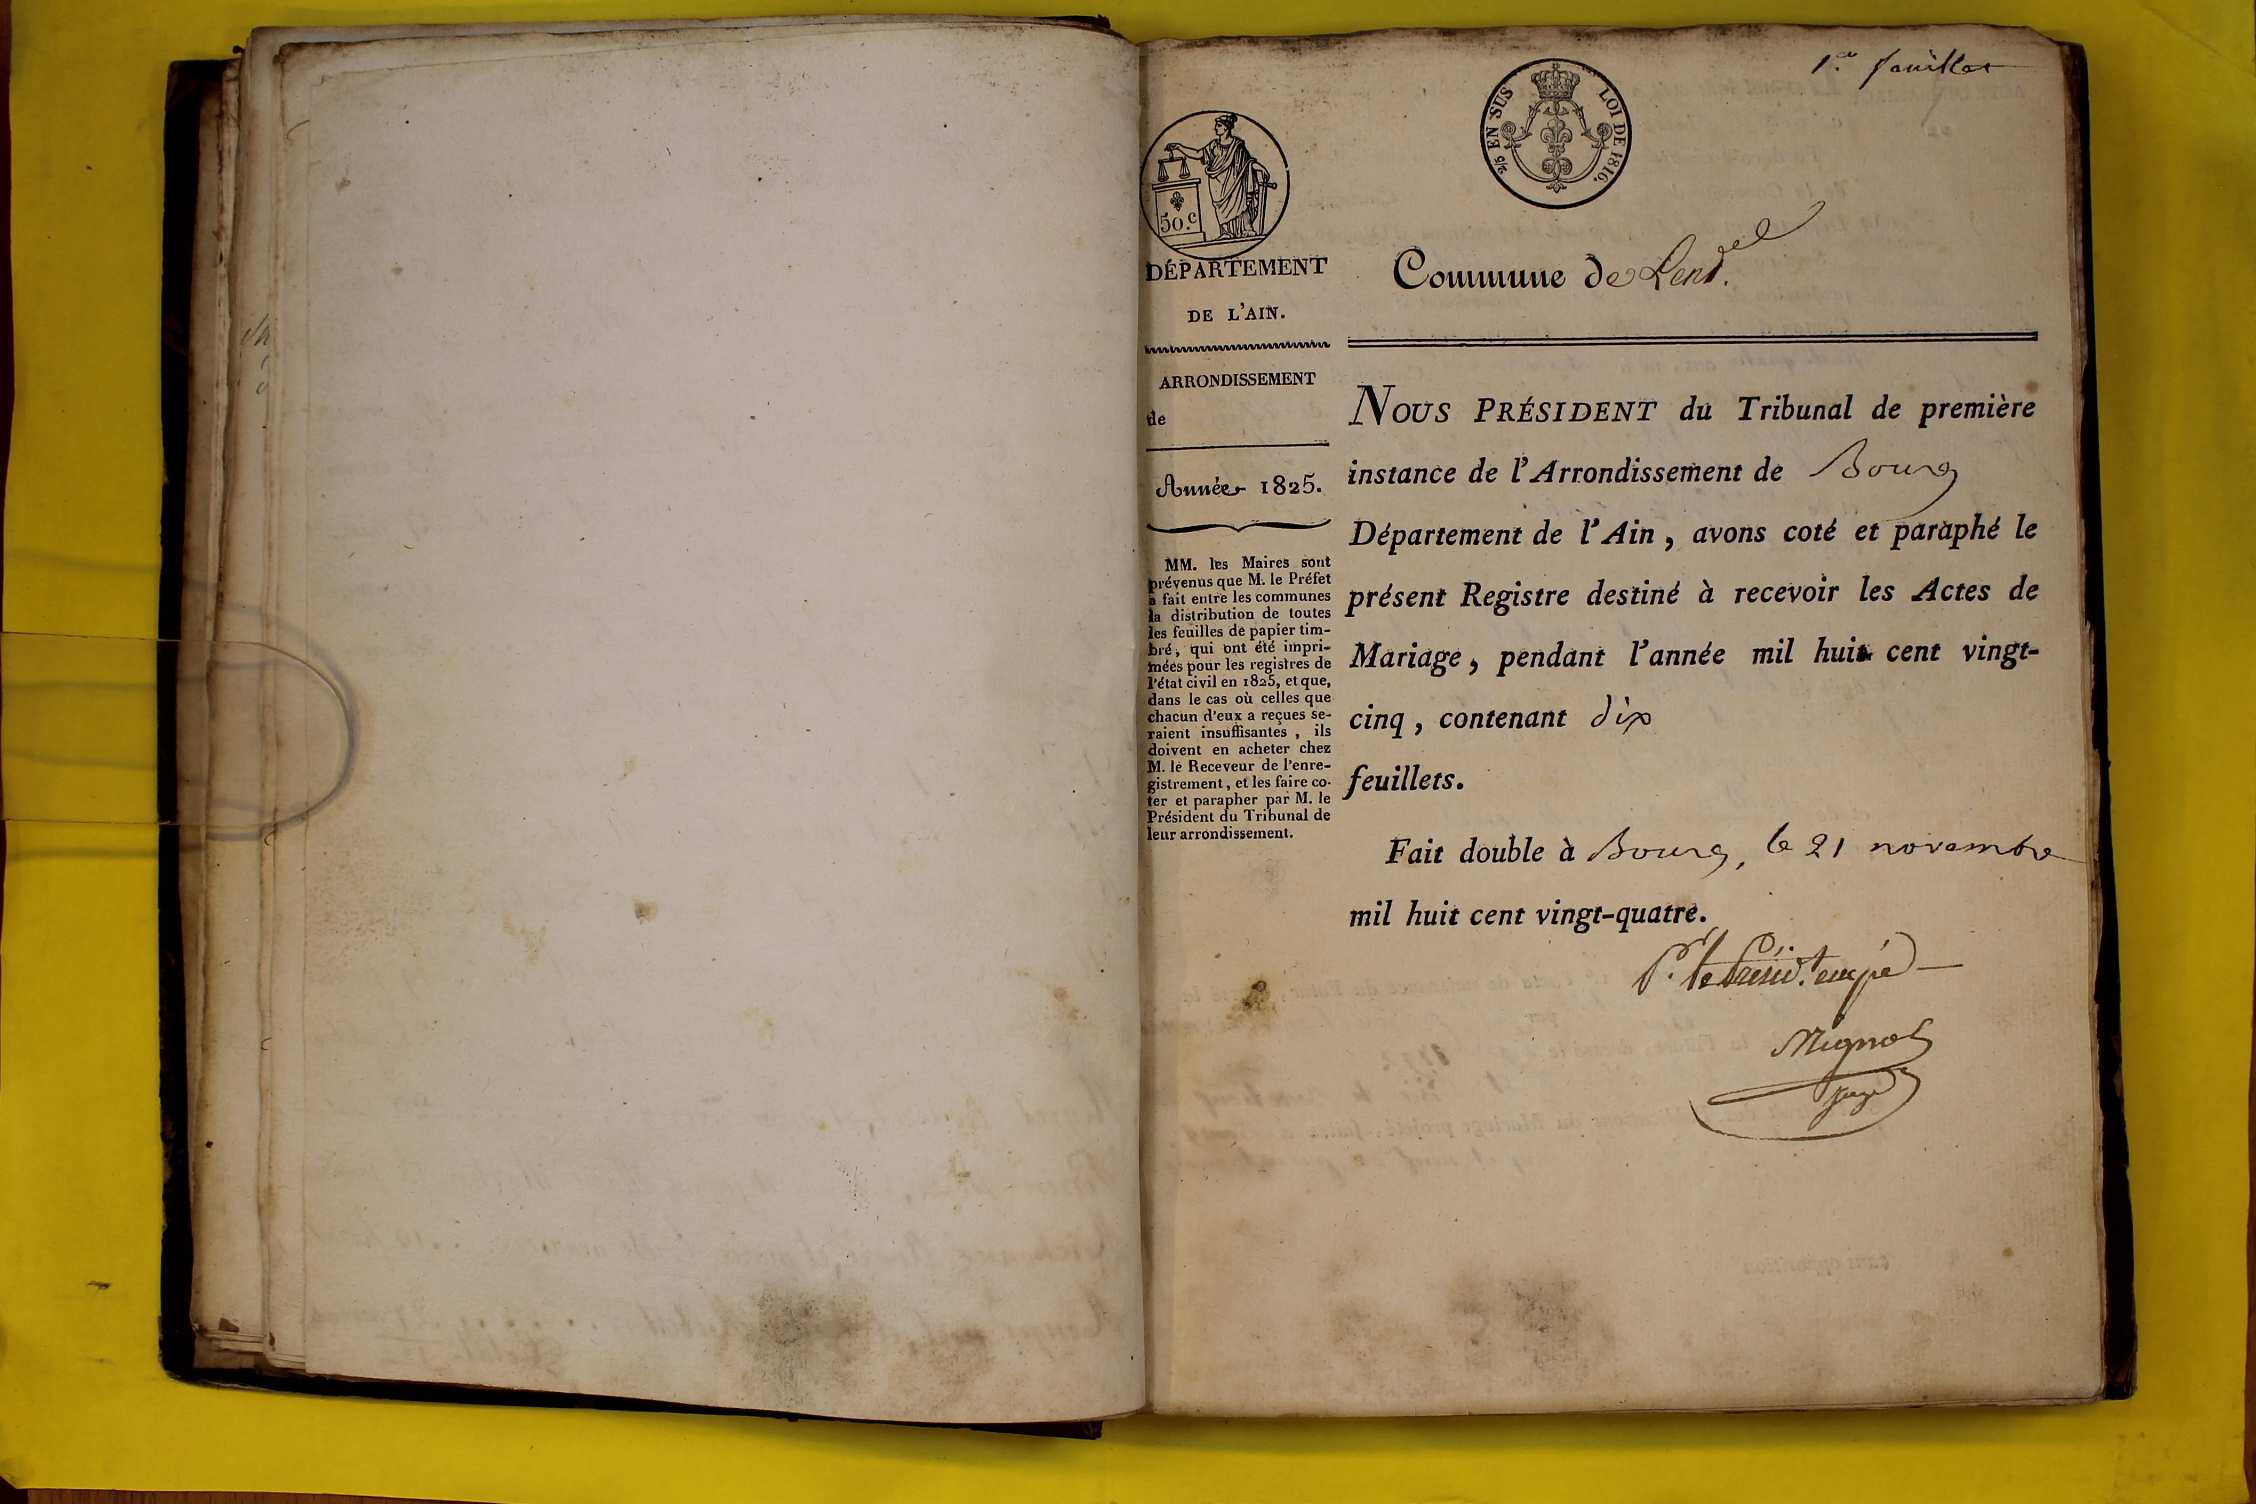 1er feuillet
2/5 EN SUS LOI DE 1816.
50.c
DÉPARTEMENT
DE L'AIN.
ARRONDISSEMENT
de
Année 1825.
MM. les Maires sont
prévenus que M. le Préfet
a fait entre les communes
la distribution de toutes
les feuilles de papier tim-
bré, qui ont été impri-
mées pour les registres de
l'état civil en 1825, et que,
dans le cas où celles que
chacun d'eux a reçues se-
raient insuffisantes, ils
doivent en acheter chez
M. le Receveur de l'enre-
gistrement, et les faire co-
ter et parapher par M. le
Président du Tribunal de
leur arrondissement.
Commune de
NOUS PRÉSIDENT du Tribunal de première
instance de l'Arrondissement de Bourg
Département de l'Ain, avons coté et paraphé le
présent Registre destiné à recevoir les Actes de
Mariage, pendant l'année mil huit cent vingt-
cinq, contenant dix
feuillets.
Fait double à Bourg, le 21 novembre
mil huit cent vingt-quatre.
P. le Présid.t empé
Mignot
Juge